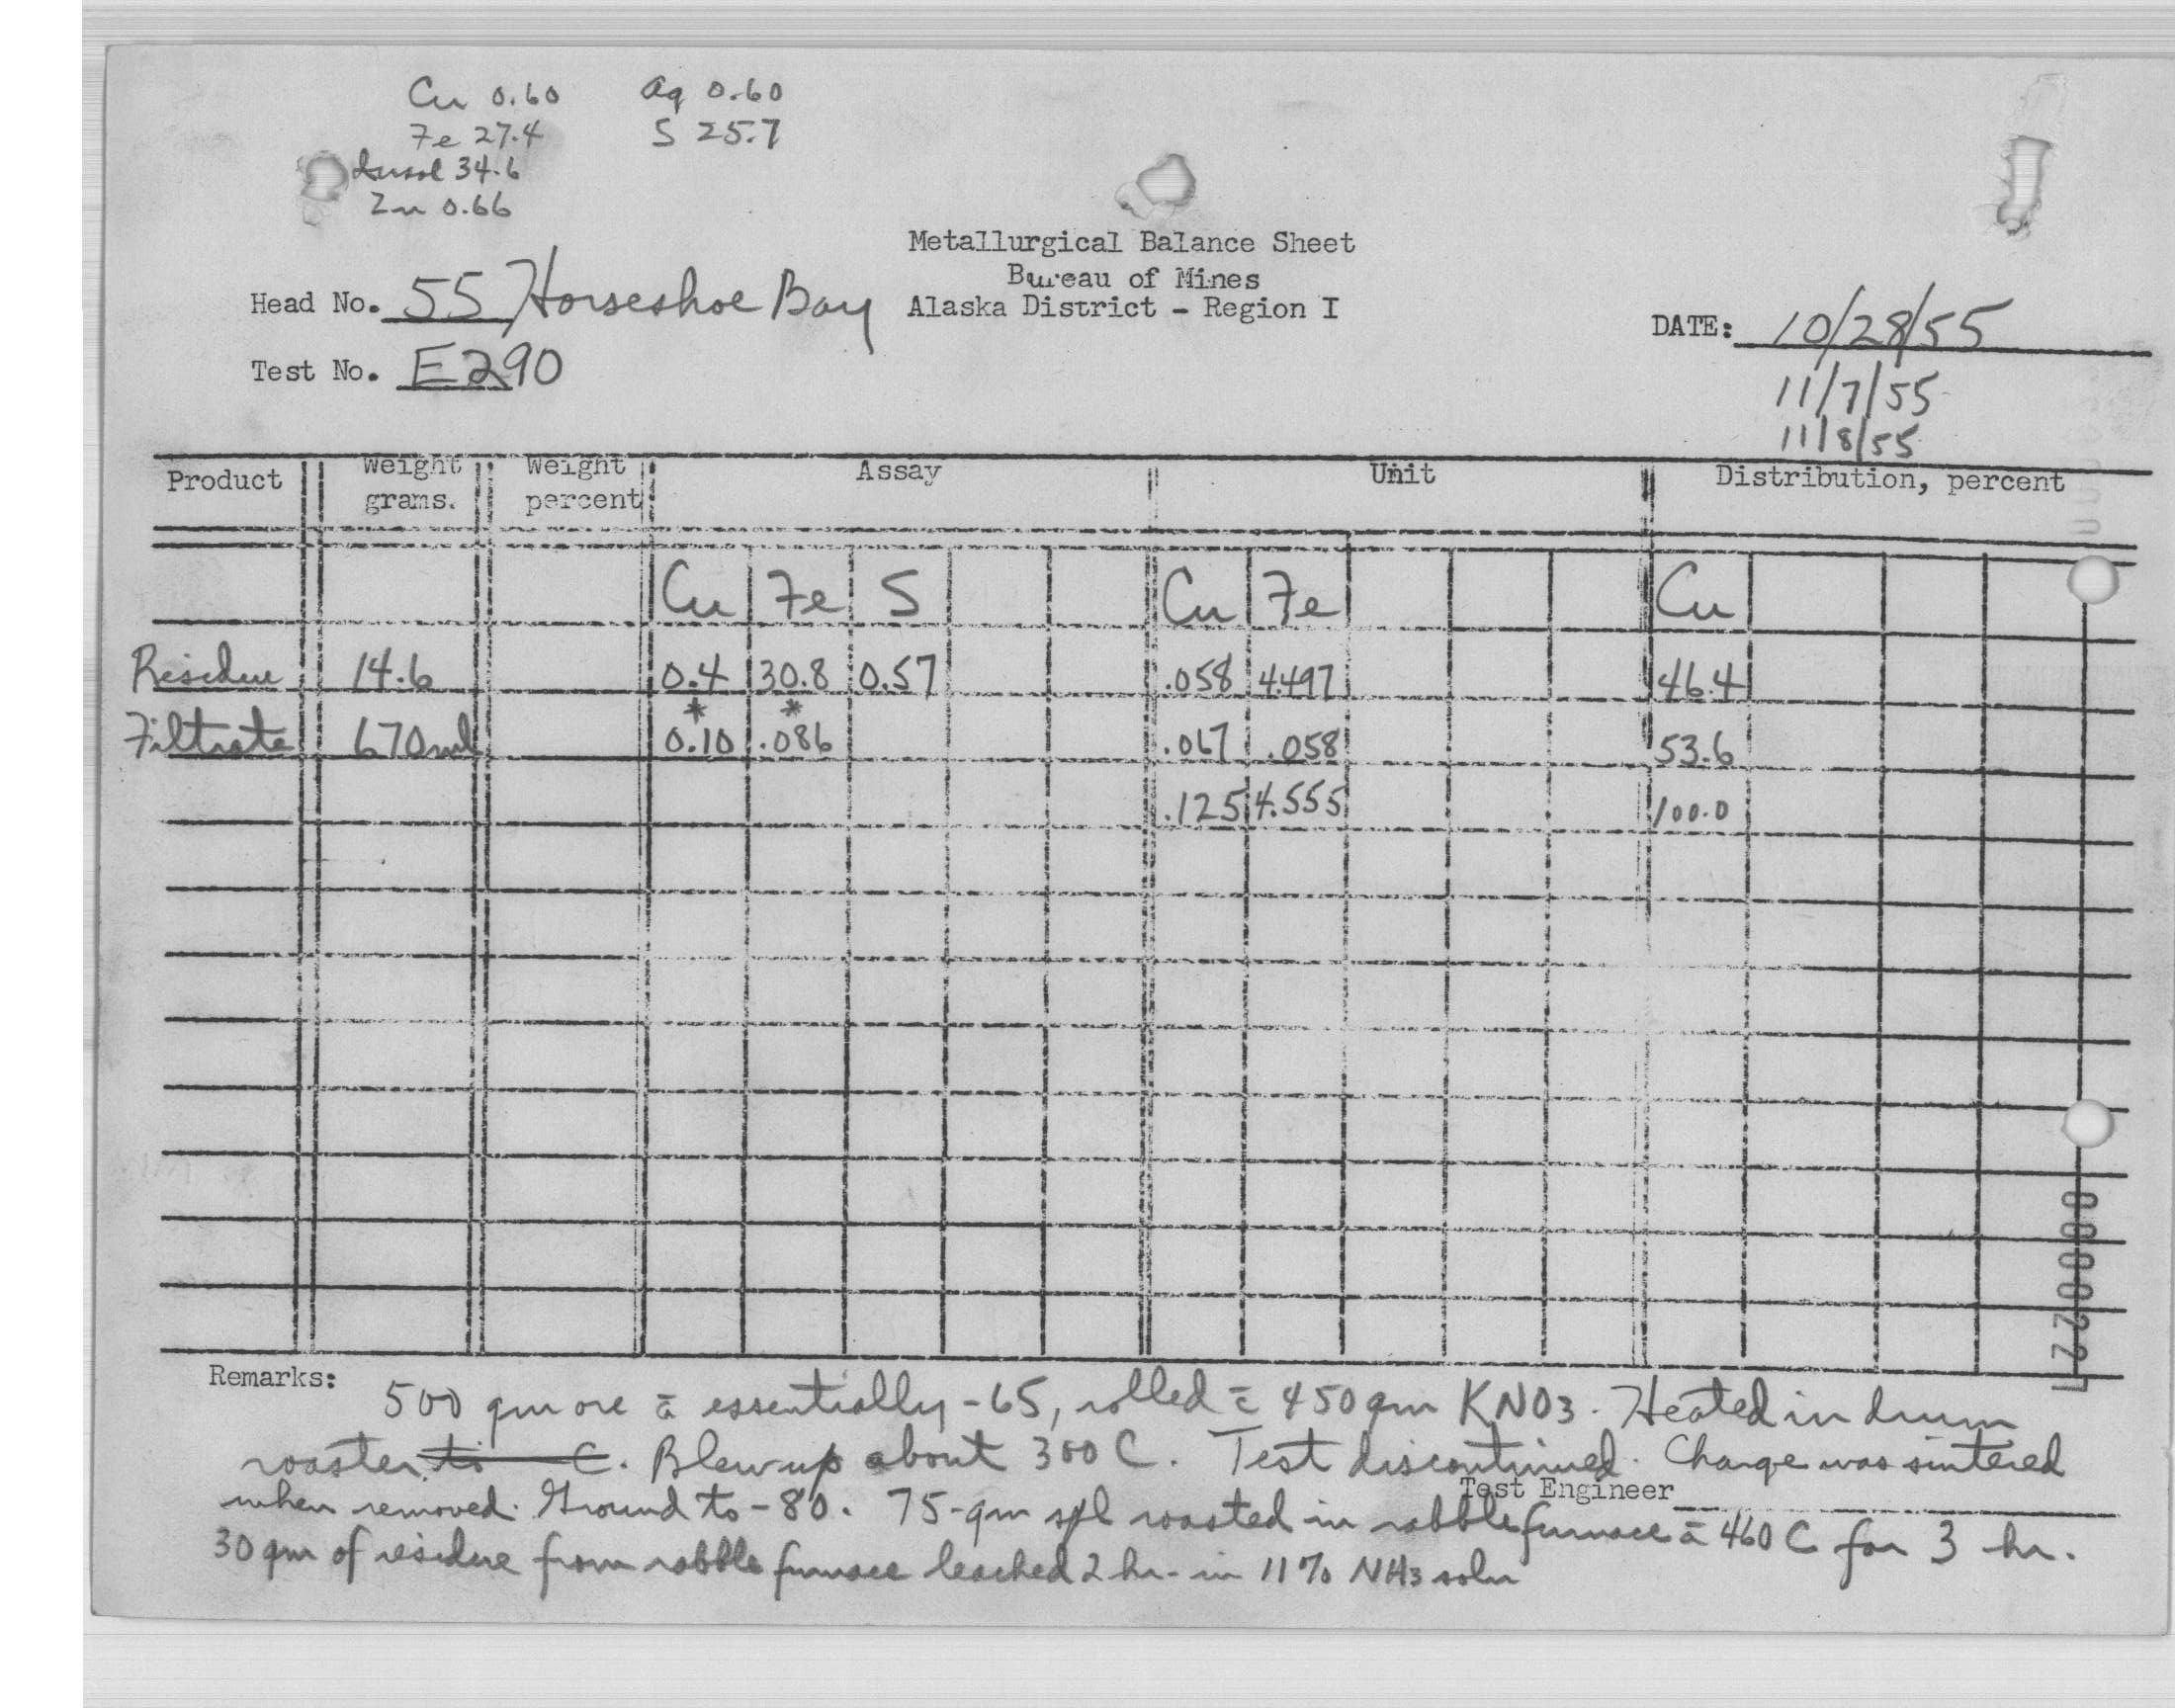 Cu 0.60 Ag 0.60
Fe 27.4 S 25.7
Insol 34.6
Zn 0.66
Metallurgical Balance Sheet
Bureau of Mines
Alaska District - Region I
Head No. 55 Horseshoe Bay
DATE: 10/28/55
Test No. E290
11/7/55
11/8/55
Product Weight grams. Weight percent Assay Unit Distribution, percent
Cu Fe S Cu Fe Cu
Residue 14.6 0.4 30.8 0.57 .058 4.497 46.4
* *
Filtrate 670ml 0.10 .086 .067 .058 53.6
.125 4.555 100.0
Remarks:
500 gm ore = essentially -65, rolled = 450 gm KNO3. Heated in drum
roaster to C. Blew up about 300 C. Test discontinued. Charge was sintered
Test Engineer
when removed. Ground to -80. 75-gm spl roasted in rabble furnace = 460 C for 3 hr.
30 gm of residue from rabble furnace leached 2 hr. in 11% NH3 soln